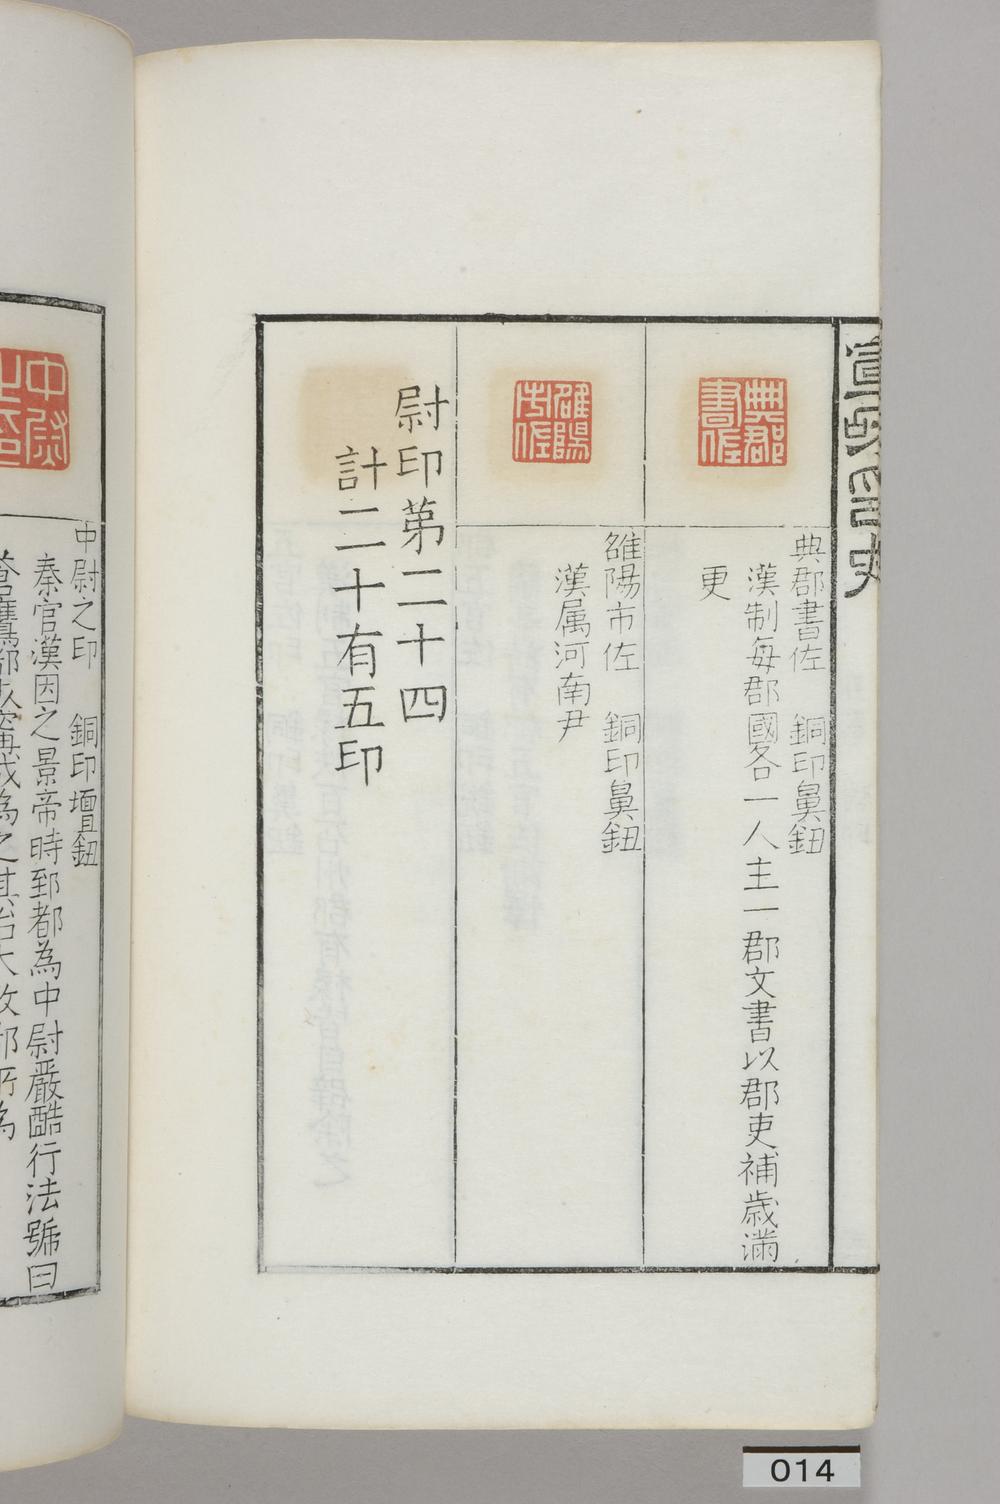 宣和印史
典郡書佐
典郡書佐　銅印鼻鈕
漢制每郡國各一人主一郡文書以郡吏補歲滿
更
雒陽市佐
雒陽市佐　銅印鼻鈕
漢属河南尹
尉印第二十四
計二十有五印
中尉之印
中尉之印　銅印壇鈕
秦官漢因之景帝時郅都為中尉嚴酷行法號曰
蒼鷹都以甯成為之其治大放郅
014